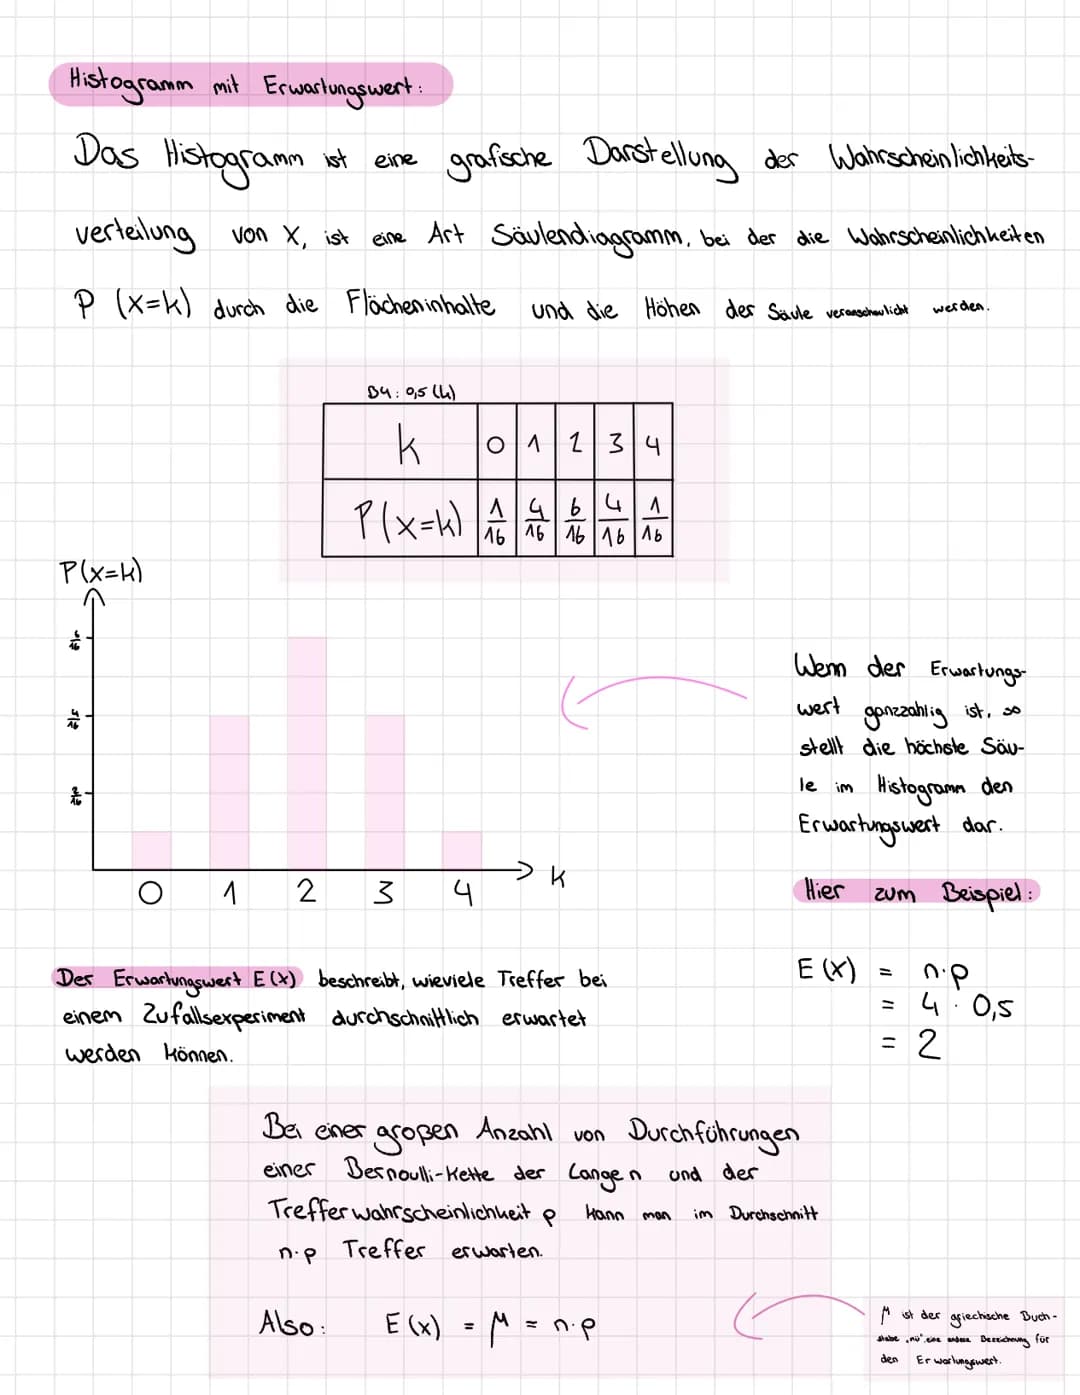 Histogramm mit Erwartungswert:
Das Histogramm ist eine grafische Darstellung der Wahrscheinlichkeits-
verteilung von X, ist eine Art Säulendiagramm, bei der die Wahrscheinlichkeiten
P (X=k) durch die Flächeninhalte und die Höhen der Säule veranschaulicht werden.
B4: 0,5 (k)
k 0 1 2 3 4
P(X=k) 1/16 4/16 6/16 4/16 1/16
P(X=k)
6/16
4/16
2/16
0 1 2 3 4
k
Wenn der Erwartungs-
wert ganzzahlig ist, so
stellt die höchste Säu-
le im Histogramm den
Erwartungswert dar.
Hier zum Beispiel:
E (X) = n·p
= 4 · 0,5
= 2
Der Erwartungswert E (X) beschreibt, wieviele Treffer bei
einem Zufallsexperiment durchschnittlich erwartet
werden können.
Bei einer großen Anzahl von Durchführungen
einer Bernoulli-Kette der Länge n und der
Trefferwahrscheinlichkeit p kann man im Durchschnitt
n·p Treffer erwarten.
Also: E (x) = μ = n·p
μ ist der griechische Buch-
stabe „mü", eine andere Bezeichnung für
den Erwartungswert.